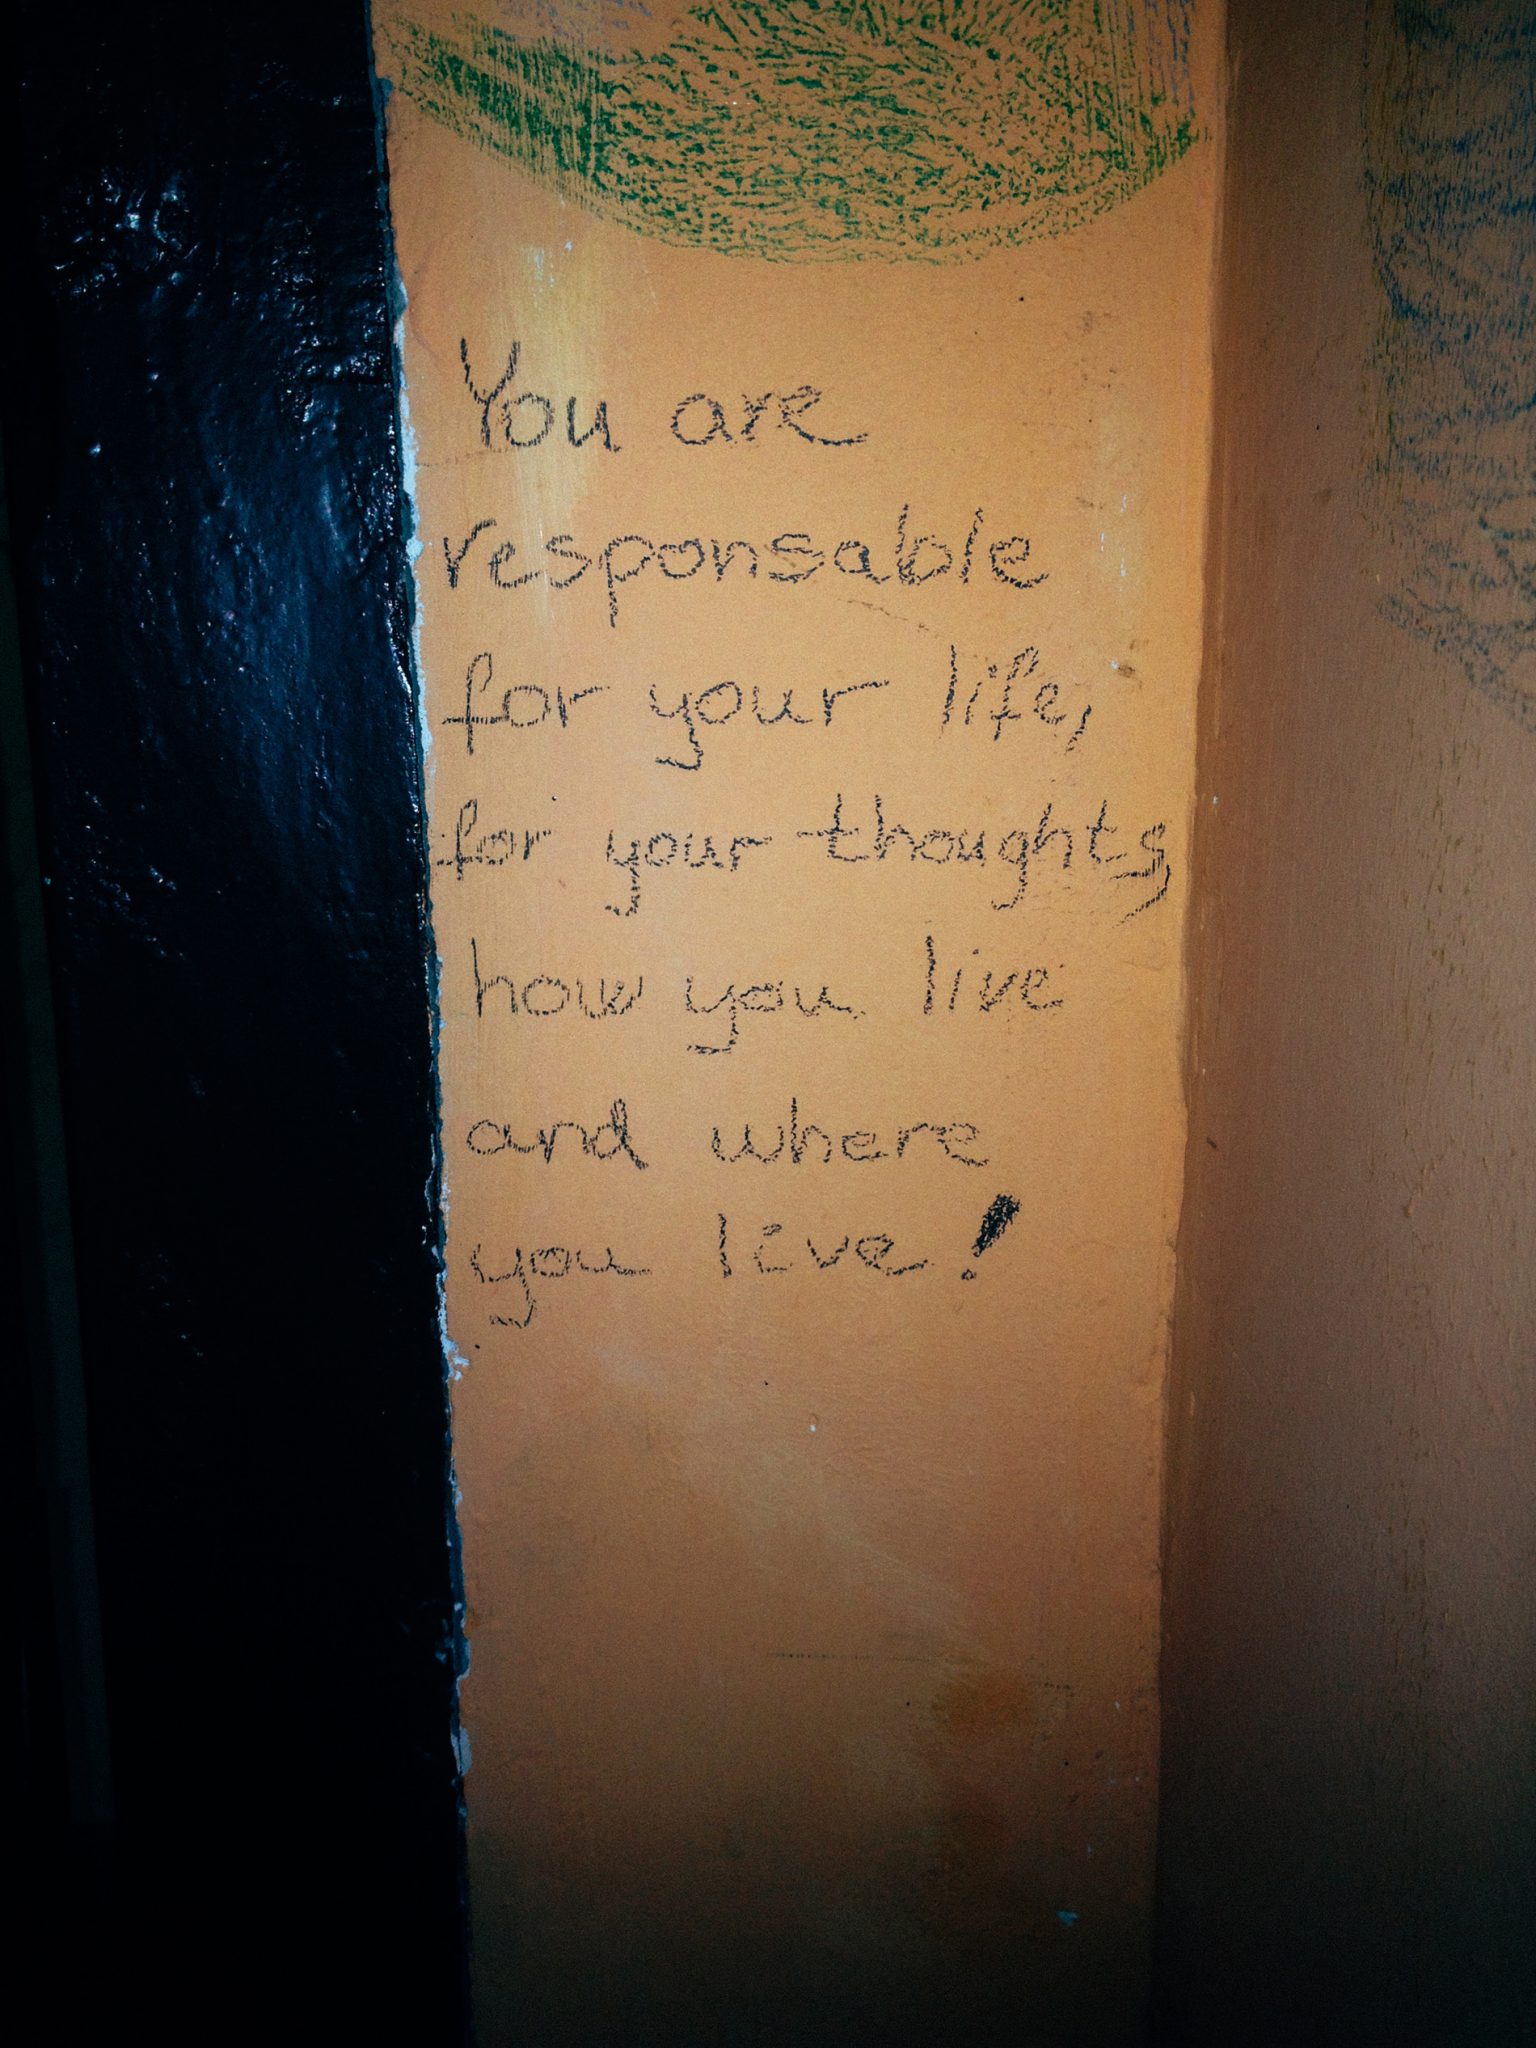 You are
responsable
for your life,
for your thoughts,
how you live
and where
you live!